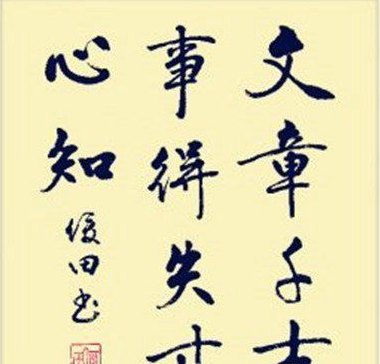 文章千古
事得失寸
心知
田书